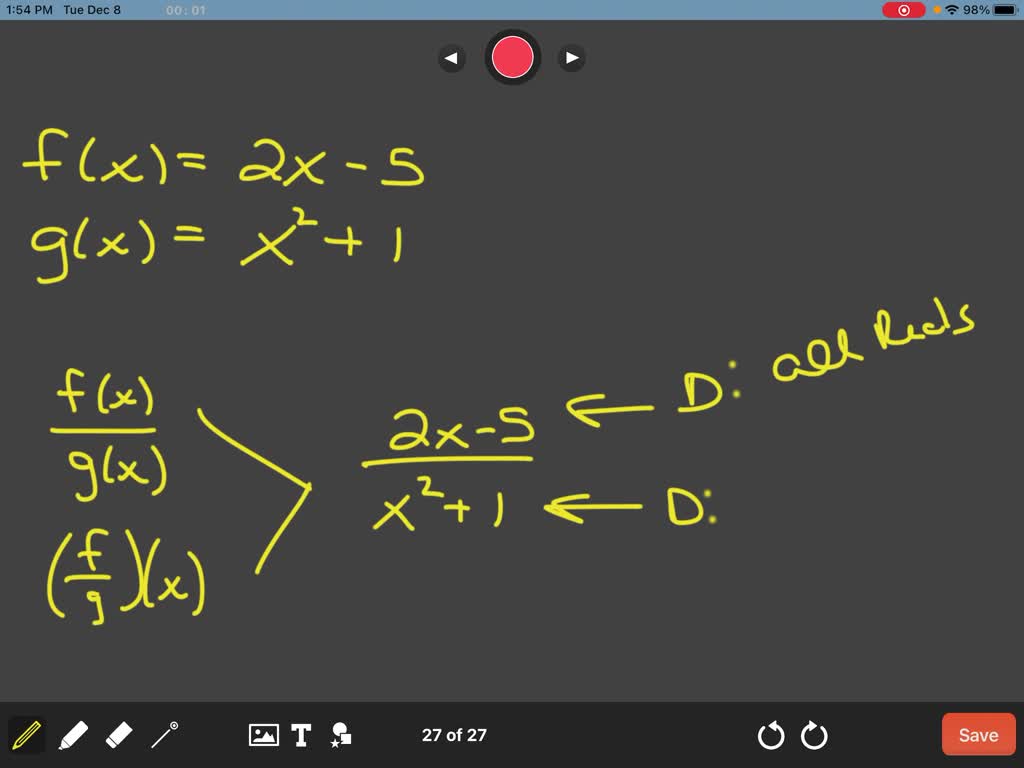 1:54 PM Tue Dec 8 00:01 98%
f(x) = 2x - 5
g(x) = x² + 1
f(x)/g(x)
(f/g)(x)
2x-5 ← D: all Reals
x²+1 ← D:
27 of 27
Save